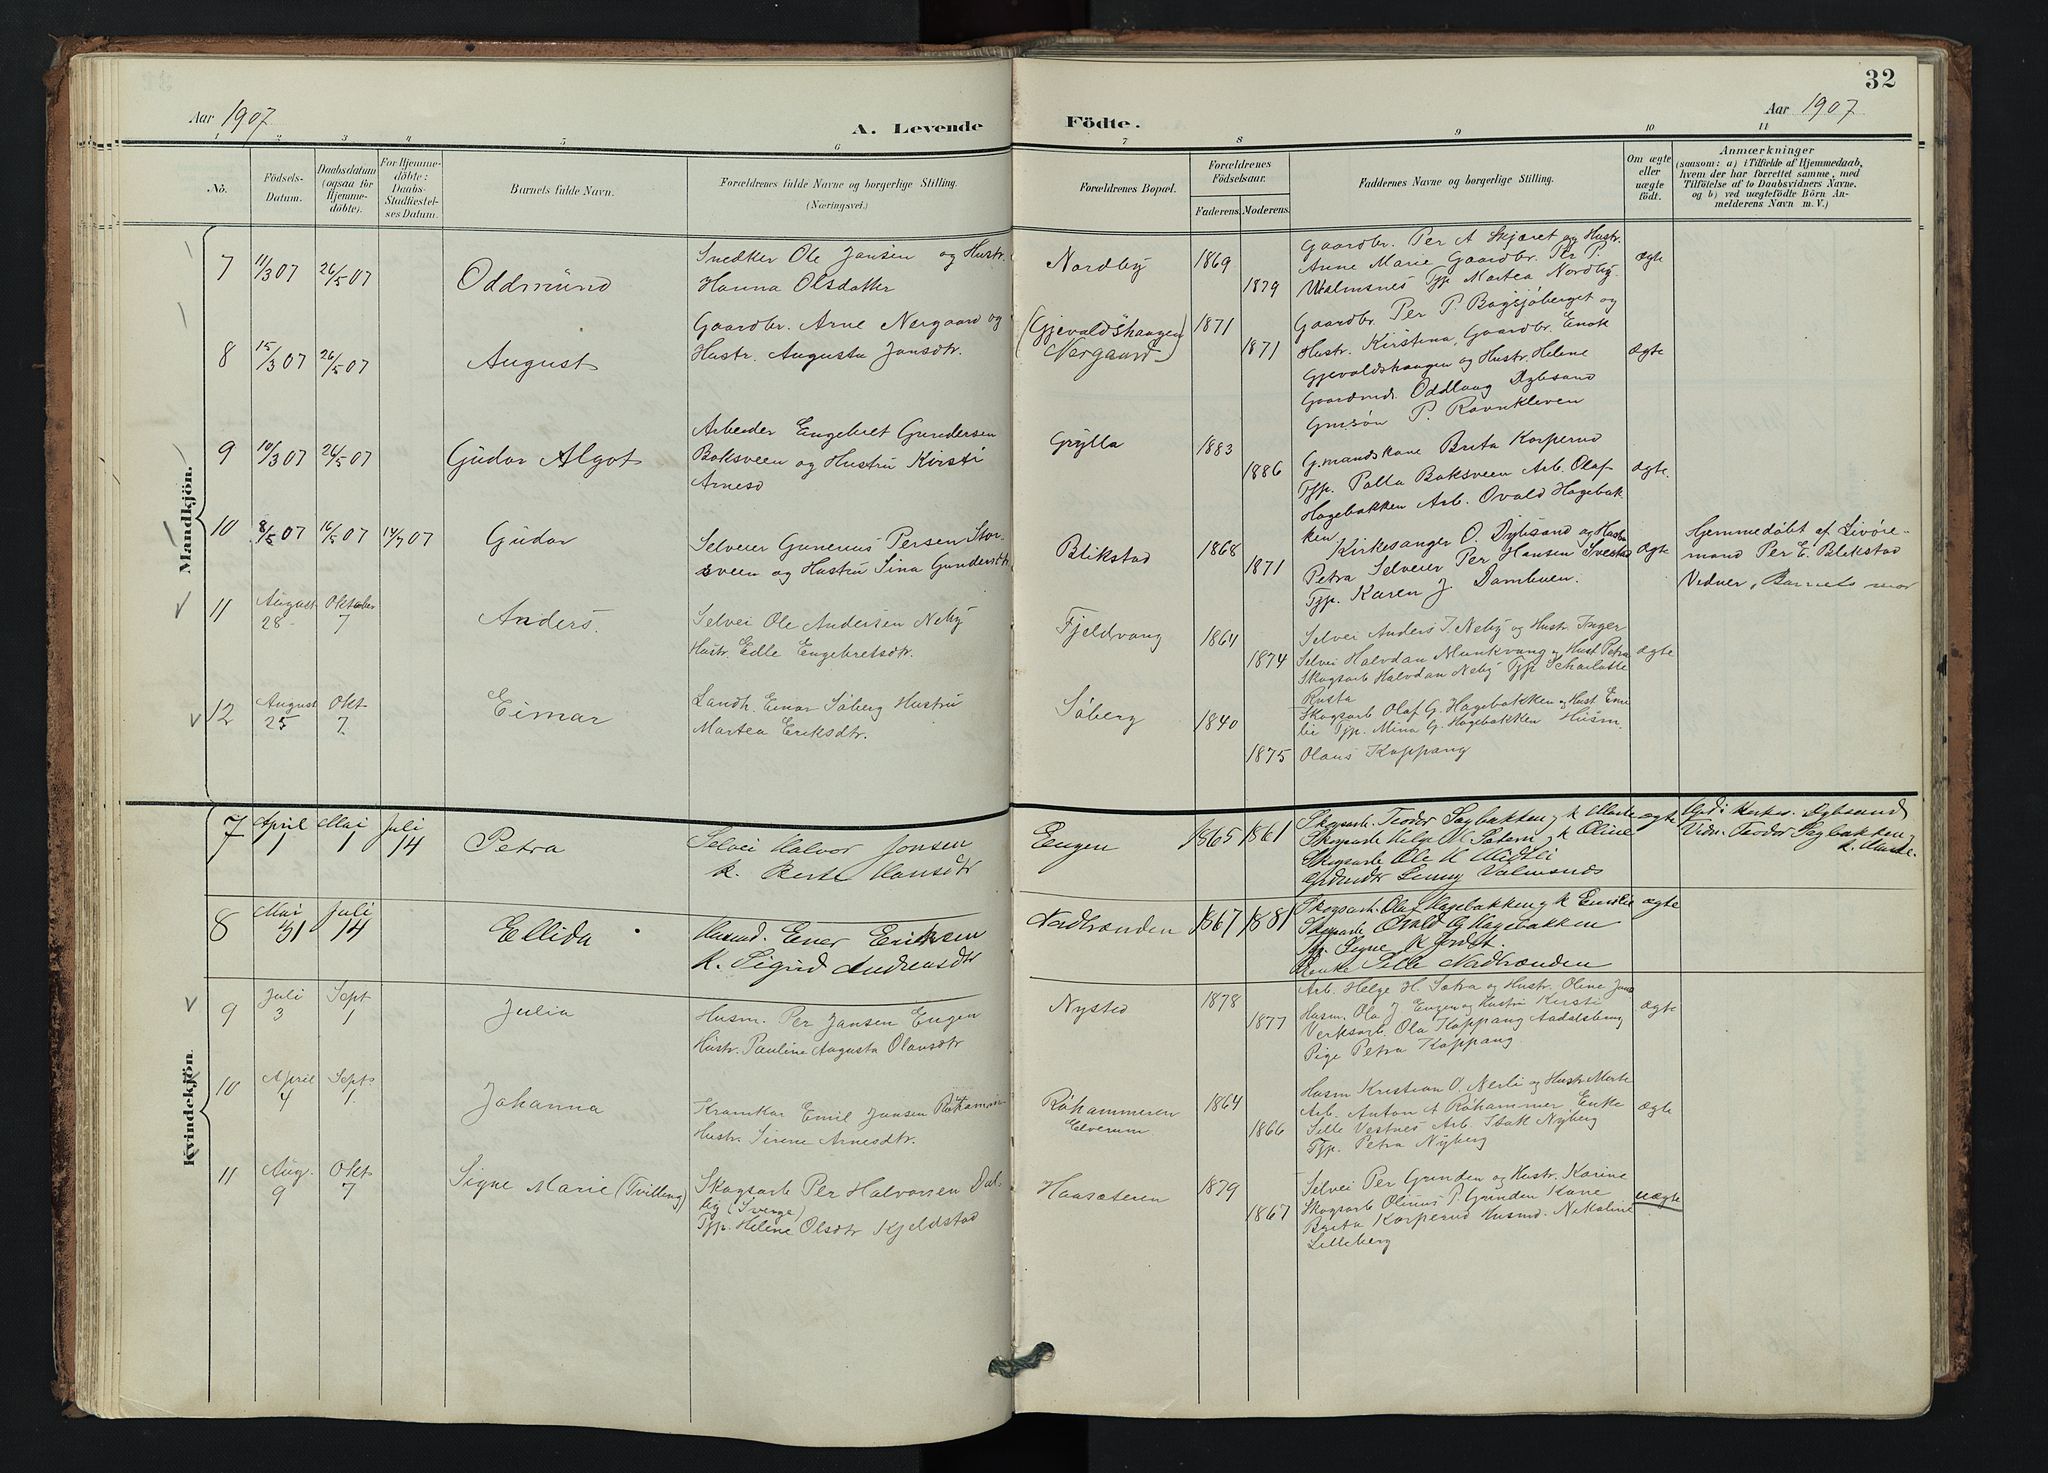 32
Aar 1907
A. Levende Födte.
Aar 1907
1 2 3 4 5 6 7 8 9 10 11
No.
Födsels-Datum.
Daabsdatum (ogsaa for Hjemme-döbte).
For Hjemme-döbte: Daabs-Stadfæstel-ses Datum.
Barnets fulde Navn.
Forældrenes fulde Navne og borgerlige Stilling. (Næringsvei.)
Forældrenes Bopæl.
Forældrenes Födselsaar.
Faderens. Moderens.
Faddernes Navne og borgerlige Stilling.
Om ægte eller uægte födt.
Anmærkninger
(saasom: a) i Tilfælde af Hjemmedaab, hvem der har forrettet samme, med Tilföielse af to Daabsvidners Navne, og b) ved uegtefödte Börn An-melderens Navn m. V.)
Mandkjön.
7 11/3 07 26/5 07 Oddmund
Snedker Ole Jansen og Hustr.
Hanna Olsdatter
Nordby 1869 1879
Gaardbr. Per A Skjæret og Hustr.
Anne Marie Gaardbr. Per P.
Ulvalmsnes Tjp. Martea Nordby
ægte
8 15/3 07 26/5 07 August
Gaardbr. Arne Nergaard og
Hustr. Augusta Jansdtr.
(Gjevaldshaugen Nergaard) 1871 1871
Gaardbr. Per P. Bagsjöberget og
Hustr. Kirstina, Gaardbr. Enok
Gjevaldshaugen og Hustr. Helene
Gaardmd. Oddlaug Dybsand
Gmsøn P. Ravnkleven
ægte
9 10/3 07 26/5 07 Gudar Algot
Arbeider Engebret Gundersen
Baksveen og Hustru Kirsti
Arnesd
Grylla 1883 1886
G.mandskone Brita Korperud
Tjp. Palla Baksveen Arb. Olaf
Hagebakken Arb. Ovald Hagebak
ken
ægte
10 8/5 07 16/5 07 14/7 07 Gudar
Selveier Gunerius Persen Stor-
sveen og Hustru Sina Gundersdtr
Blikstad 1868 1871
Kirkesanger O. Dybsand og Hustru
Petra Selveier Per Hansen Svestad
Tjp. Karen J Damhuen.
ægte
Hjemmedöbt af Livöre-
mand Per E. Blekstad
Vidner, Barnets mor
11 August 28 Oktober 7 Anders.
Selvei Ole Andersen Neby
Hustr. Edle Engebretsdtr.
Fjeldvang 1864 1874
Selvei Anders T. Neby og Hustr. Inger
Selvei Halvdan Munkvang og Hust Petra
Skogsarb Halvdan Neby Tjp Scharlotte
Rusta
ægte
12 August 25 Okt 7. Eimar
Landh. Einar Søberg Hustru
Martea Eriksdtr.
Søberg 1840 1875
Skogsarb Olaf G. Hagebakken og Hust Emi
lie Tjp. Mina G. Hagebakken Husm.
Olaus Koppang
Kvindekjön.
7 April 1 Mai 1 Juli 14 Petra
Selvei Halvor Jonsen
k. Berte Hansdtr
Eugen 1865 1861
Skogsarb. Teodor Sagbakken og k Marte
Skogsarb Helge H. Sætern og k Oline
Skogsarb Ole H Midtli
Grdmdtr Jenny Valmsnes
ægte
Vidn. Teodor Sagbakken
k. Marte.
8 Mai 31 Juli 14 Ellida
Husmd. Ener Eriksen
k. Sigrid Andreasdtr
Nordtrænden 1867 1881
Skogsarb. Olaf Hagebakken og k Emilie
Skogsarb Ovald G Hagebakken
Tjp. Signe K Jordet.
Enke Sille Nordtrænden
ægte
9 Juli 3 Sept 1 Julia
Husm. Per Jansen Eugen
Hustr. Pauline Augusta Olausdtr
Nysted 1878 1877
Arb. Helge H. Sætra og Hustr. Oline Jans
Husm. Ola J Eugen og Hustru Kirsti
Verksarb. Ola Koppang Aadalsbrug
Pige Petra Koppang
ægte
10 April 4 Septs 1. Johanna
Kramkar Emil Jansen Röhammer
Hustr. Sirene Arnesdtr.
Röhammeren Elverum 1864 1866
Husm Kristian O. Nerli og Hustr Marte
Arb. Anton A Röhammer Enke
Sille Vestnes Arb. Isak Nyberg
Tjp. Petra Nyberg
ægte
11 Aug. 9 Okt 7 Signe Marie (Tvilling)
Skogsarb Per Halvorsen Dal-
by (Sverge)
Tjp. Helene Olsdtr Kjeldstad
Haasæteren 1879 1867
Selvei Per Grunden og Hustr. Karine
Skogsarb Olinus P. Grunden Kone
Brita Korperud Husmd. Nikoline
Lilleberg
uægte